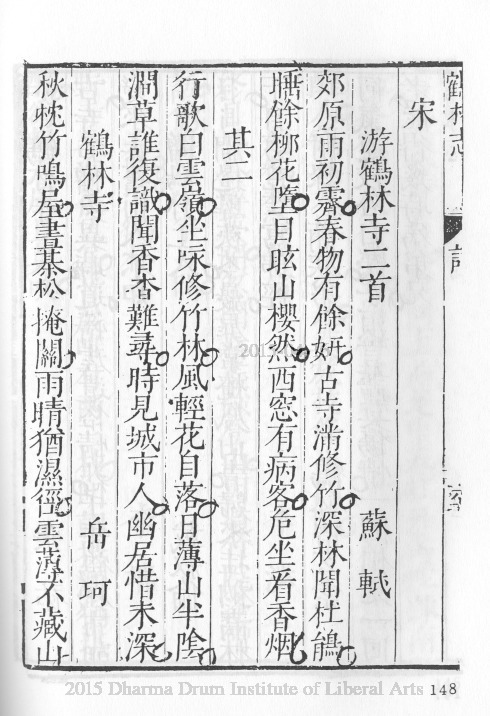 鶴林志 詩
宋
游鶴林寺二首 蘇軾
郊原雨初霽春物有餘妍古寺滿修竹深林聞杜鵑
睡餘柳花墮目眩山櫻然西窓有病客危坐看香烟
其二
行歌白雲嶺坐詠修竹林風輕花自落日薄山半陰
澗草誰復識聞香杳難尋時見城市人幽居惜未深
鶴林寺 岳珂
秋枕竹鳴屋晝棊松掩關雨晴猶濕徑雲薄不藏山
2015 Dharma Drum Institute of Liberal Arts
148